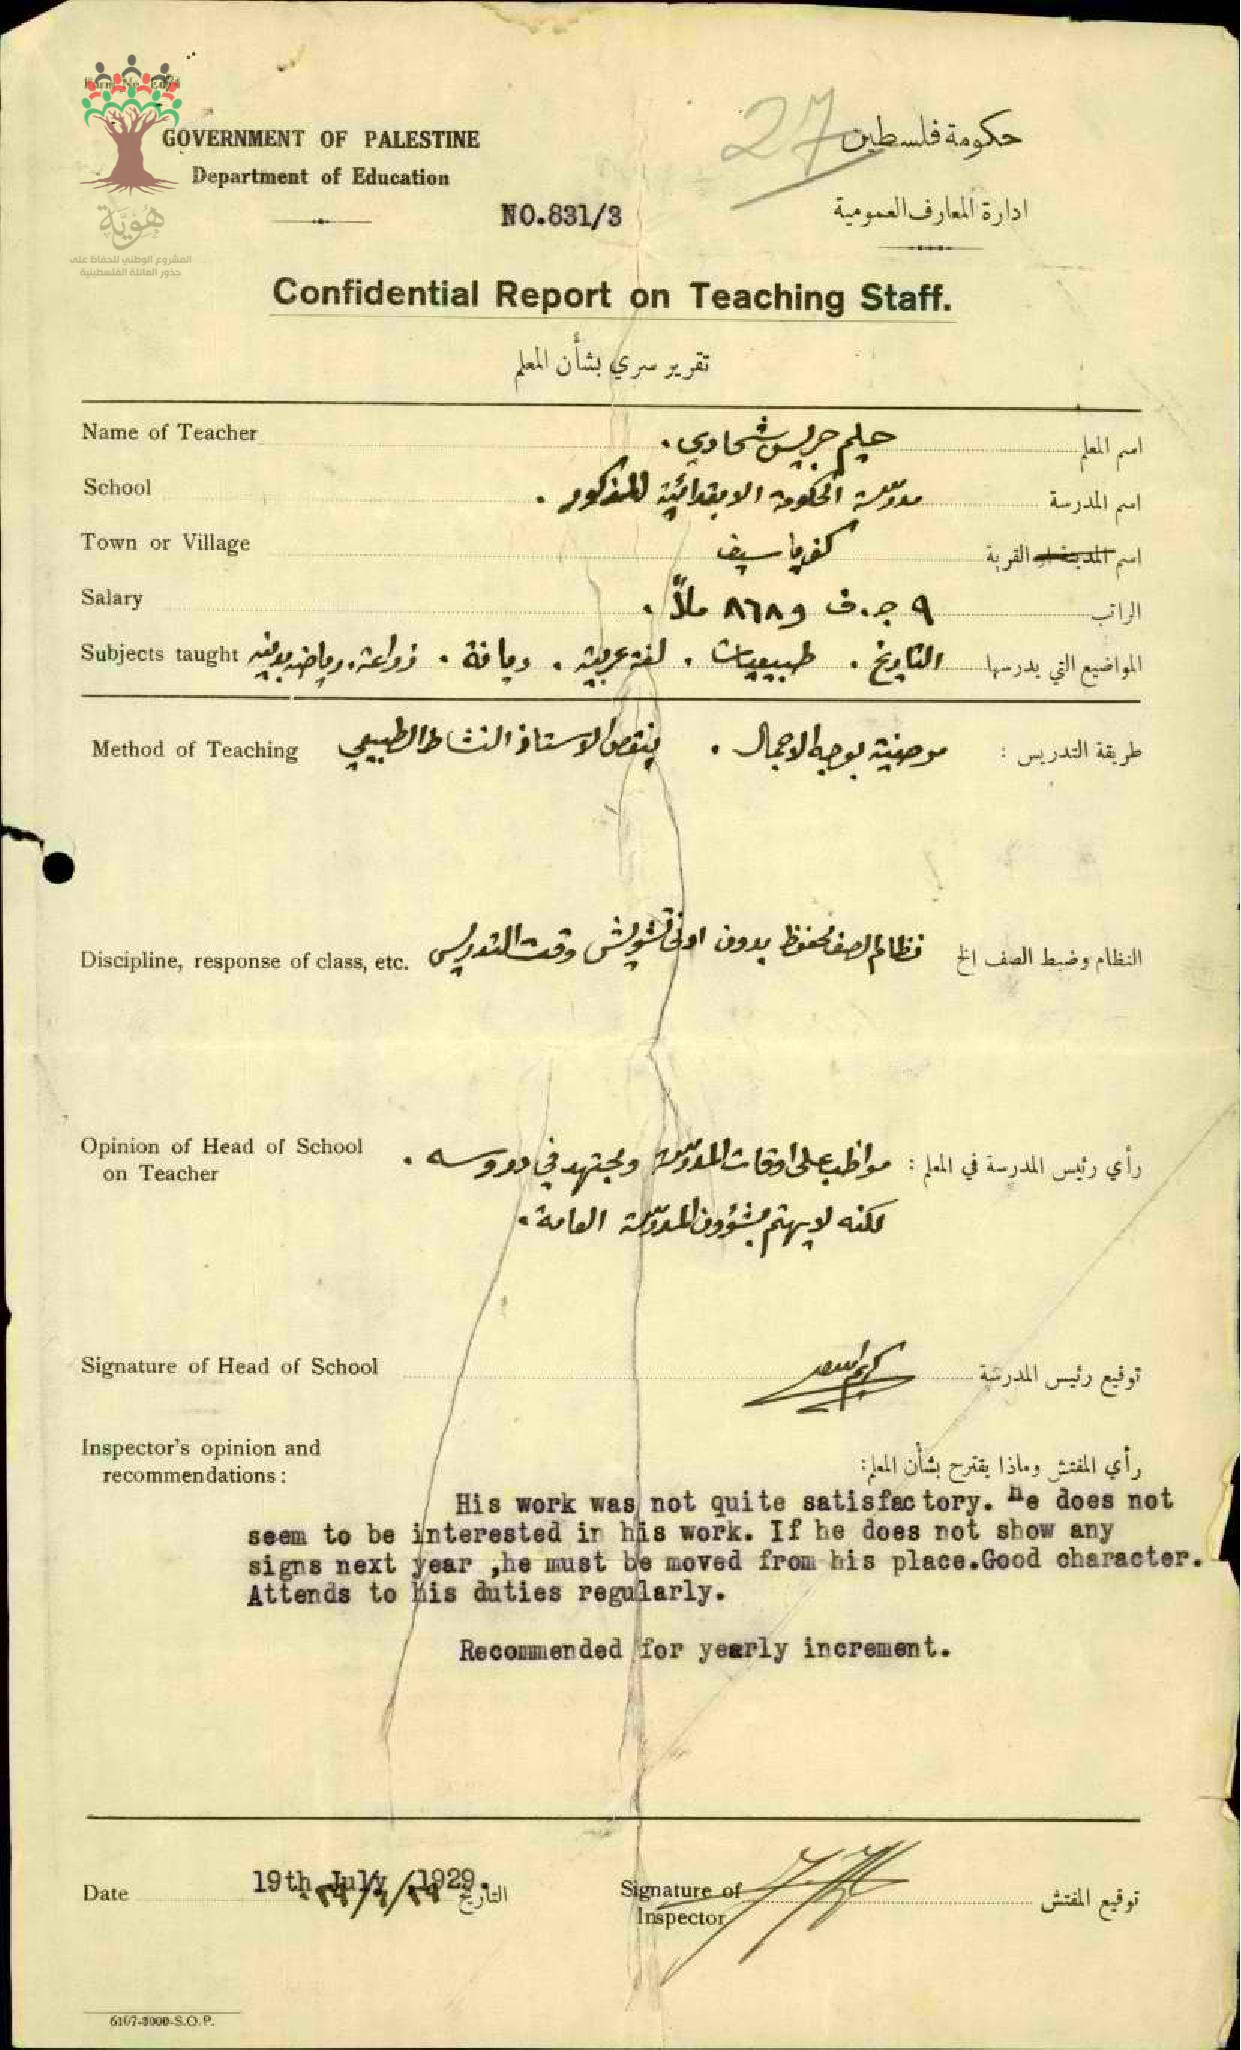 هُوِيَّة
المشروع الوطني للحفاظ على
جذور العائلة الفلسطينية
27
GOVERNMENT OF PALESTINE
Department of Education
حكومة فلسطين
ادارة المعارف العمومية
NO.831/3
Confidential Report on Teaching Staff.
تقرير سري بشأن المعلم
Name of Teacher حليم جريس شحادي. اسم المعلم
School مدرسة الحكومة الابتدائية للذكور. اسم المدرسة
Town or Village كفر ياسيف اسم المدينة او القرية
Salary ٩ ج.ف و ٨٦٨ ملاً. الراتب
Subjects taught التاريخ. طبيعيات. لغة عربية. ديانة. زراعة. رياضة بدنية المواضيع التي يدرسها
Method of Teaching مرضية بوجه الاجمال. ينقص الاستاذ النشاط الطبيعي طريقة التدريس :
Discipline, response of class, etc. نظام الصف محفوظ بدون ادنى تشويش وقت التدريس النظام وضبط الصف الخ
Opinion of Head of School
on Teacher
رأي رئيس المدرسة في المعلم : مواظب على اوقات المدرسة ومجتهد في دروسه.
لكنه لا يهتم بشؤون المدرسة العامة.
Signature of Head of School توقيع رئيس المدرسة
Inspector's opinion and
recommendations :
رأي المفتش وماذا يقترح بشأن المعلم:
His work was not quite satisfactory. He does not
seem to be interested in his work. If he does not show any
signs next year ,he must be moved from his place.Good character.
Attends to his duties regularly.
Recommended for yearly increment.
Date 19th July /1929. التاريخ
Signature of
Inspector
توقيع المفتش
6107-3000-S.O.P.